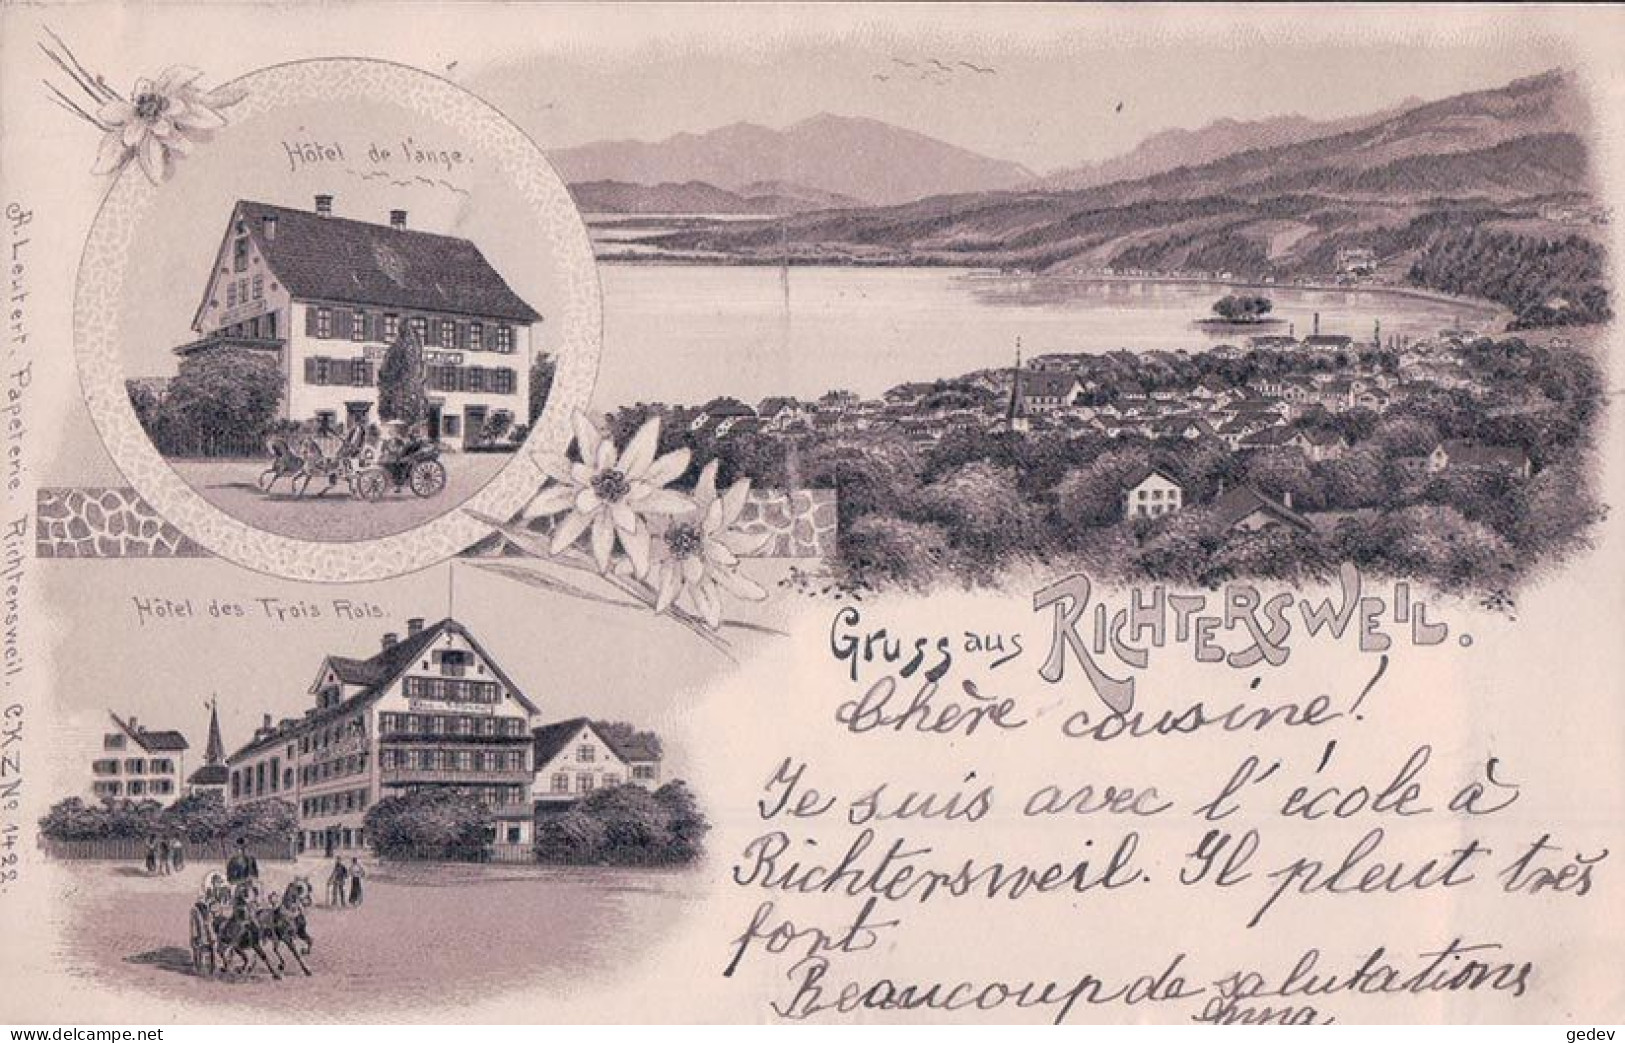 Hôtel de l'ange.
Hôtel des Trois Rois.
A. Leutert, Papeterie. Richtersweil. CKZ No. 1422.
Gruss aus RICHTERSWEIL.
Chère cousine!
Je suis avec l'école à
Richtersweil. Il pleut très
fort
Beaucoup de salutations
Anna
gedev